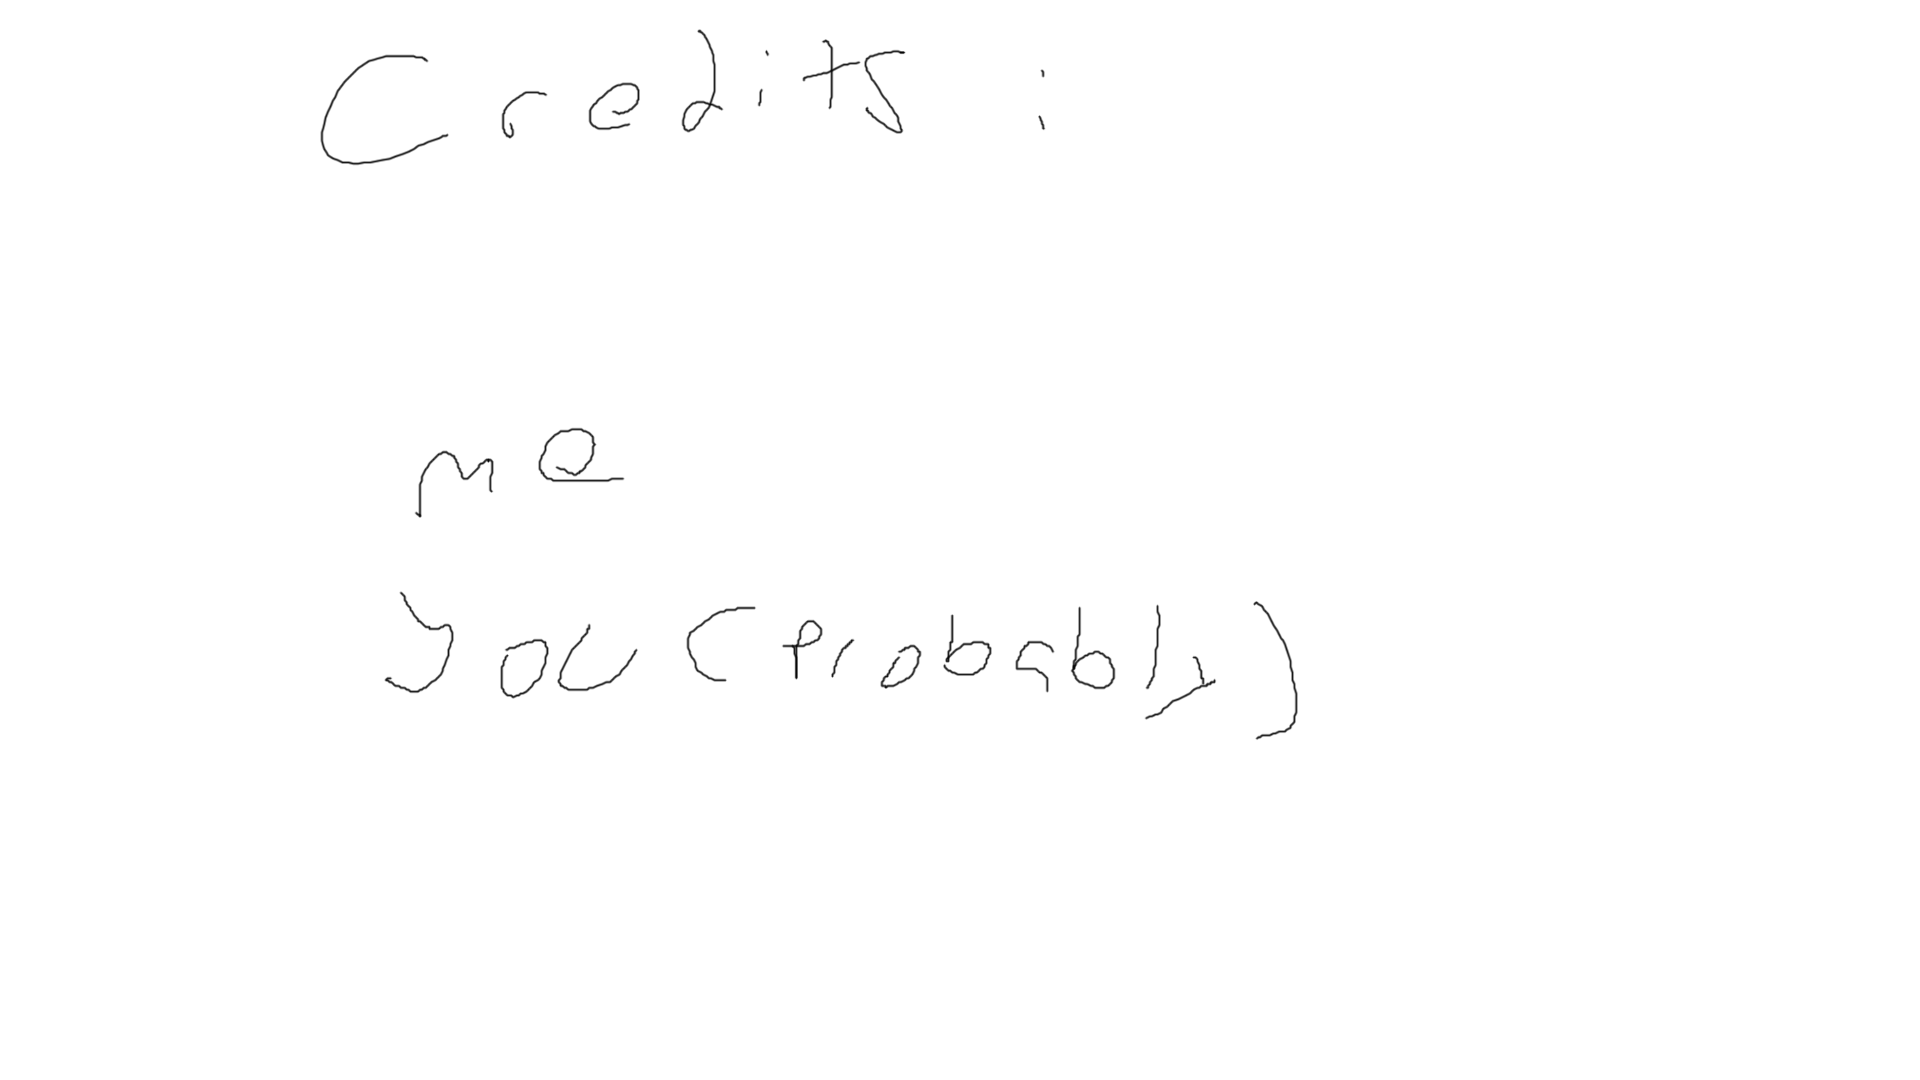 Credits :
me
you (probably)